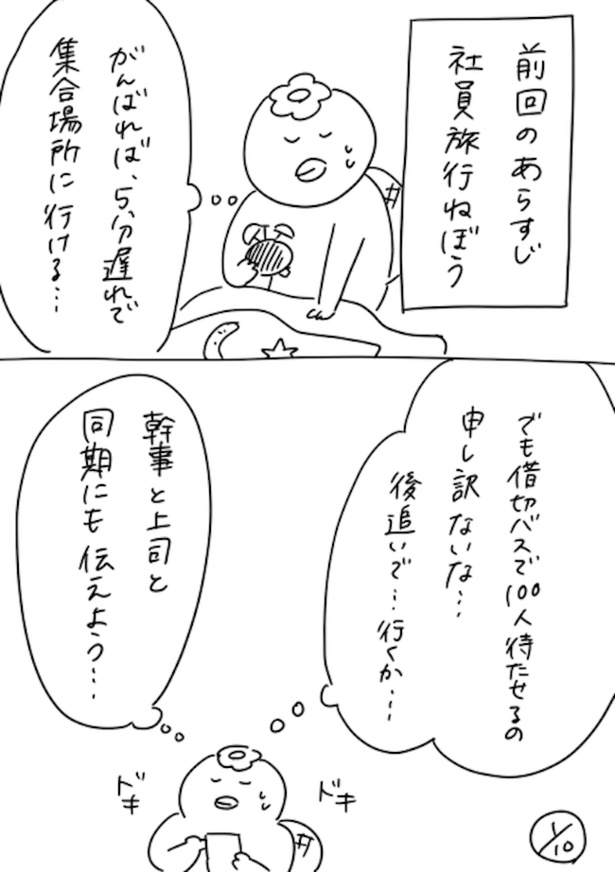 前回のあらすじ
社員旅行ねぼう
がんばれば、5分遅れで
集合場所に行ける…
でも借切バスで100人待たせるの
申し訳ないな…
後追いで…行くか…
幹事と上司と
同期にも伝えよう…
ドキ
ドキ
1/10